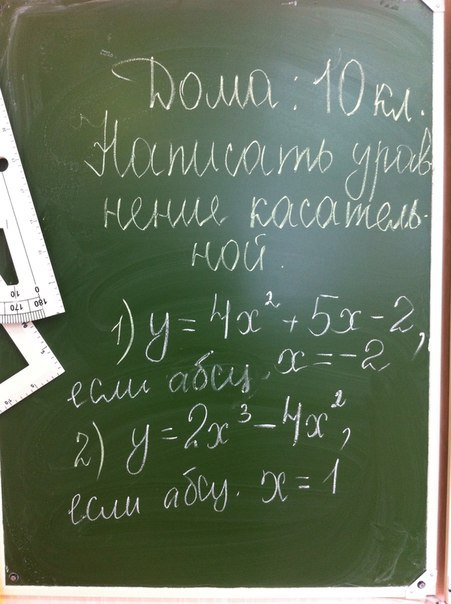 Дома: 10 кл.
Написать урав
нение касатель-
ной.
1) y = 4x² + 5x - 2,
если абсц. x = -2
2) y = 2x³ - 4x²,
если абсц. x = 1
0 180
10 170